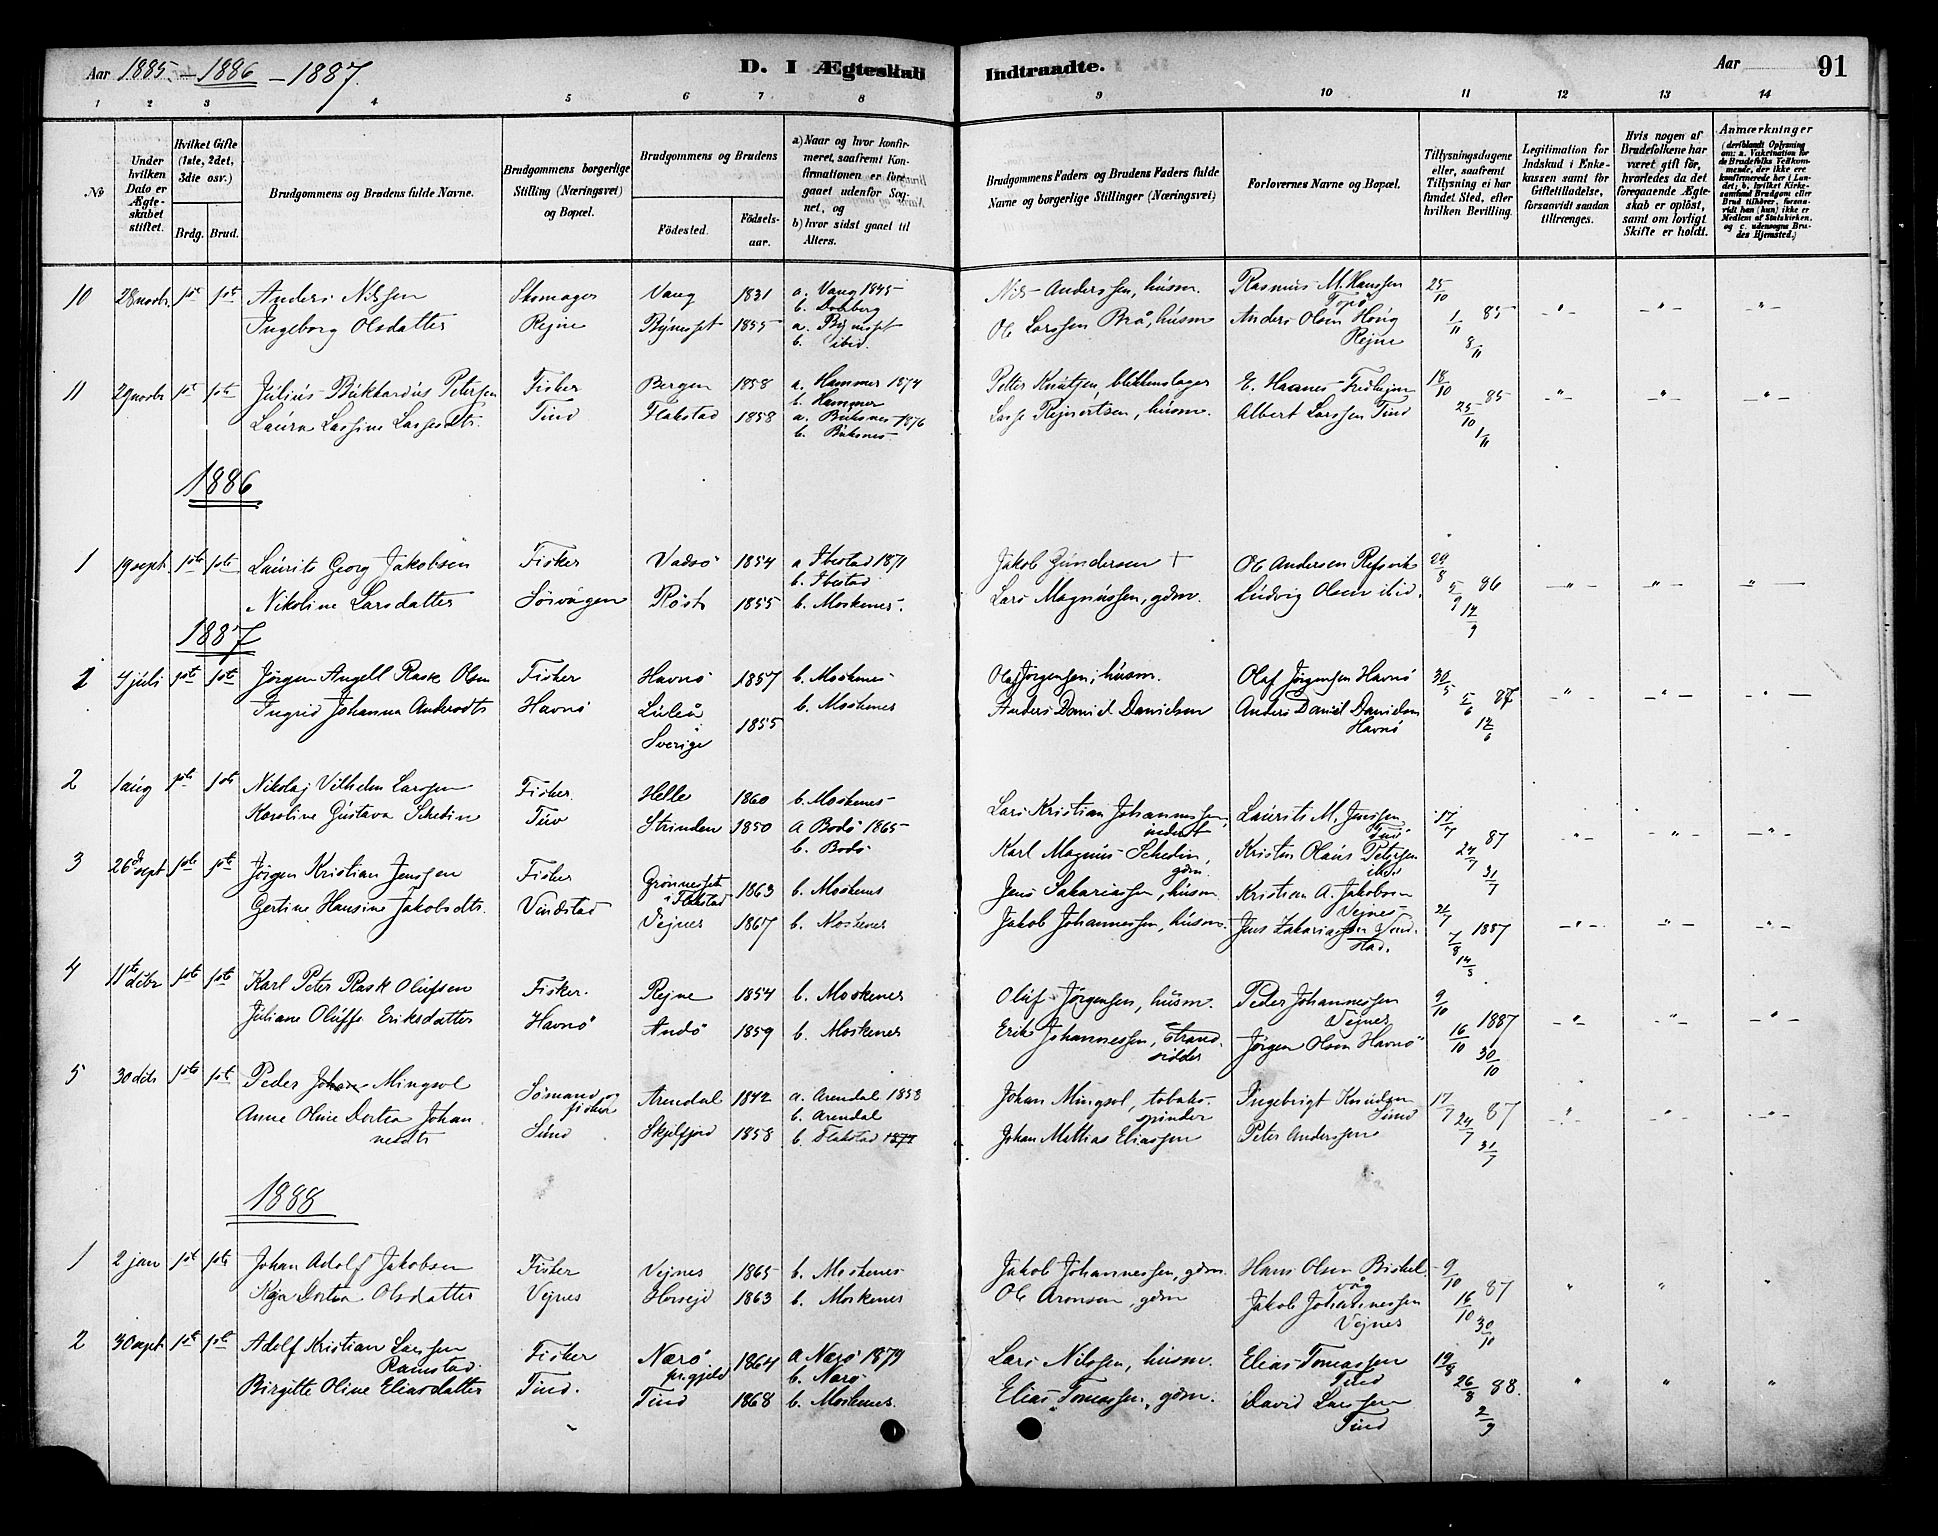 Aar 1885 - 1886 - 1887.
D. I Ægteskab
Indtraadte.
Aar
91
1 2 3 4 5 6 7 8 9 10 11 12 13 14
No
Under hvilken Dato er Ægteskabet stiftet.
Hvilket Gifte (1ste, 2det, 3die osv.)
Brdg. Brud.
Brudgommens og Brudens fulde Navne.
Brudgommens borgerlige Stilling (Næringsvei) og Bopæl.
Brudgommens og Brudens
Fødested.
Fødsels-aar.
a) Naar og hvor konfirmeret, saafremt Konfirmationen er foregaaet udenfor Sognet, og
b) hvor sidst gaaet til Alters.
Brudgommens Faders og Brudens Faders fulde Navne og borgerlige Stillinger (Næringsvei)
Forlovernes Navne og Bopæl.
Tillysningsdagene eller, saafremt Tillysning ei har fundet Sted, efter hvilken Bevilling.
Legitimation for Indskud i Enkekassen samt for Giftetilladelse, forsaavidt saadan tiltrænges.
Hvis nogen af Brudefolkene har været gift før, hvorledes da det foregaaende Ægteskab er opløst, samt om lovligt Skifte er holdt.
Anmærkninger
(deriblandt Oplysning om: a. Vakcination for de Brudefolks Vedkommende, der ikke ere konfirmerede her i Landet; b. hvilket Kirkesamfund Brudgom eller Brud tilhører, forsaavidt han (hun) ikke er Medlem af Statskirken, og c. udensogns Brudes Hjemsted.)
10 28 novbr 1ste 1ste Anders Nilssen Skomager Vang 1831 a. Vang 1845 Nils Anderssen, husm. Rasmus M. Hanssen 25/10
b. Dobberg Topø
Ingeborg Olsdatter Rejne Bÿnesset 1855 a. Bÿnesset Ole Larssen Brå, husm Anders Olsen Høüg 1/11 85
b. ibid. Rejne 8/11
11 29 novbr 1ste 1ste Julius Bukhardus Petersen Fisker Bergen 1858 a. Hammer 1874 Petter Knutzen, blikkenslager E. Haanes Fredhejm 18/10
b. Hammer 85
Laura Lassine Lassesdtr. Tind Flakstad 1858 a. Buksnes 1876 Lasse Rejnertsen, husm. Albert Larssen Tind 25/10
b. Buksnes 1/11
1886
1 19 sept. 1ste 1ste Laurits Georg Jakobsen Fisker Vadsø 1854 a Ibestad 1871 Jakob Gundersen + Ole Andersen Refsvik 29/8
b. Ibestad
Nikoline Larsdatter Sørvågen Røst 1855 b. Moskenes. Lars Magnussen, gdm. Ludvig Olsen ibid. 5/9 86
12/9
1887
1 4 juli 1ste 1ste Jørgen Angell Rask Olsen Fisker Havnø 1857 b. Moskenes Olaf Jørgensen, husm. Olaf Jørgensen Havnø 30/5
Ingrid Johanna Andersdtr Havnø Luleå 1855 b. Moskenes Anders Daniel Danielsen Anders Daniel Danielsen 5/6 87
Sverige Havnø 12/6
2 1 aug 1ste 1ste Nikolaj Vilhelm Larssen Fisker. Helle 1860 b. Moskenes Lars Kristian Johannessen, Laurits M. Jenssen 17/7
inderst Tind
Karoline Gustava Schedin Tuv Strinden 1850 a Bodø 1865 Karl Magnus Schedin, Kristen Olaus Petersen 24/7 87
b. Bodø gdm. ibid 31/7
3 26de sept 1ste 1ste Jørgen Kristian Jenssen Fisker Grønneset i Flakstad 1863 b. Moskenes Jens Sakariassen, husm Kristian A. Jakobsen
Vejnes
Gertine Hansine Jakobsdtr. Vindstad Vejnes 1867 b. Moskenes Jakob Johannessen, husm. Jens Zakariassen Vindstad. 7/8 1887
14/8
4 11te dcbr 1ste 1ste Karl Peter Rask Olufsen Fisker. Rejne 1854 b. Moskenes Oluf Jørgensen, husm. Peder Johannessen 9/10
Vejnes
Juliane Oluffe Eriksdatter Havnø Andø 1859 b. Moskenes Erik Johannessen, strandsidder Jørgen Olsen Havnø 16/10 1887
30/10
5 30 dcbr 1ste 1ste Peder Johan Mingsol Sømand og fisker Arendal 1842 a. Arendal 1858 Johan Mingsol, tobaksspinder Ingebrigt Knudsen 17/7
b. Arendal Sund
Anne Oline Dortea Johannesdtr Sund Skjelfjord 1858 b. Flakstad Johan Mathias Eliassen Peter Anderssen 24/7 87
31/7
1888
1 2 jan 1ste 1ste Johan Adolf Jakobsen Fisker Vejnes 1865 b. Moskenes Jakob Johannessen, gdm. Hans Olsen Birkelvåg 9/10
Kaja Dortea Olsdatter Vejnes Horsejd 1863 b. Moskenes Ole Aronsen, gdm Jakob Johannessen 16/10 87
Vejnes 30/10
2 30 sept 1ste 1ste Adolf Kristian Larssen Ramstad Fisker Nærø prgjeld 1864 a Nærø 1879 Lars Nilssen, husm. Elias Tomassen 19/8
b. Nærø Tind
Birgitte Oline Eliasdatter Tind. Tind 1868 b. Moskenes. Elias Tomassen, gdm. David Larssen 26/8 88.
Tind 2/9